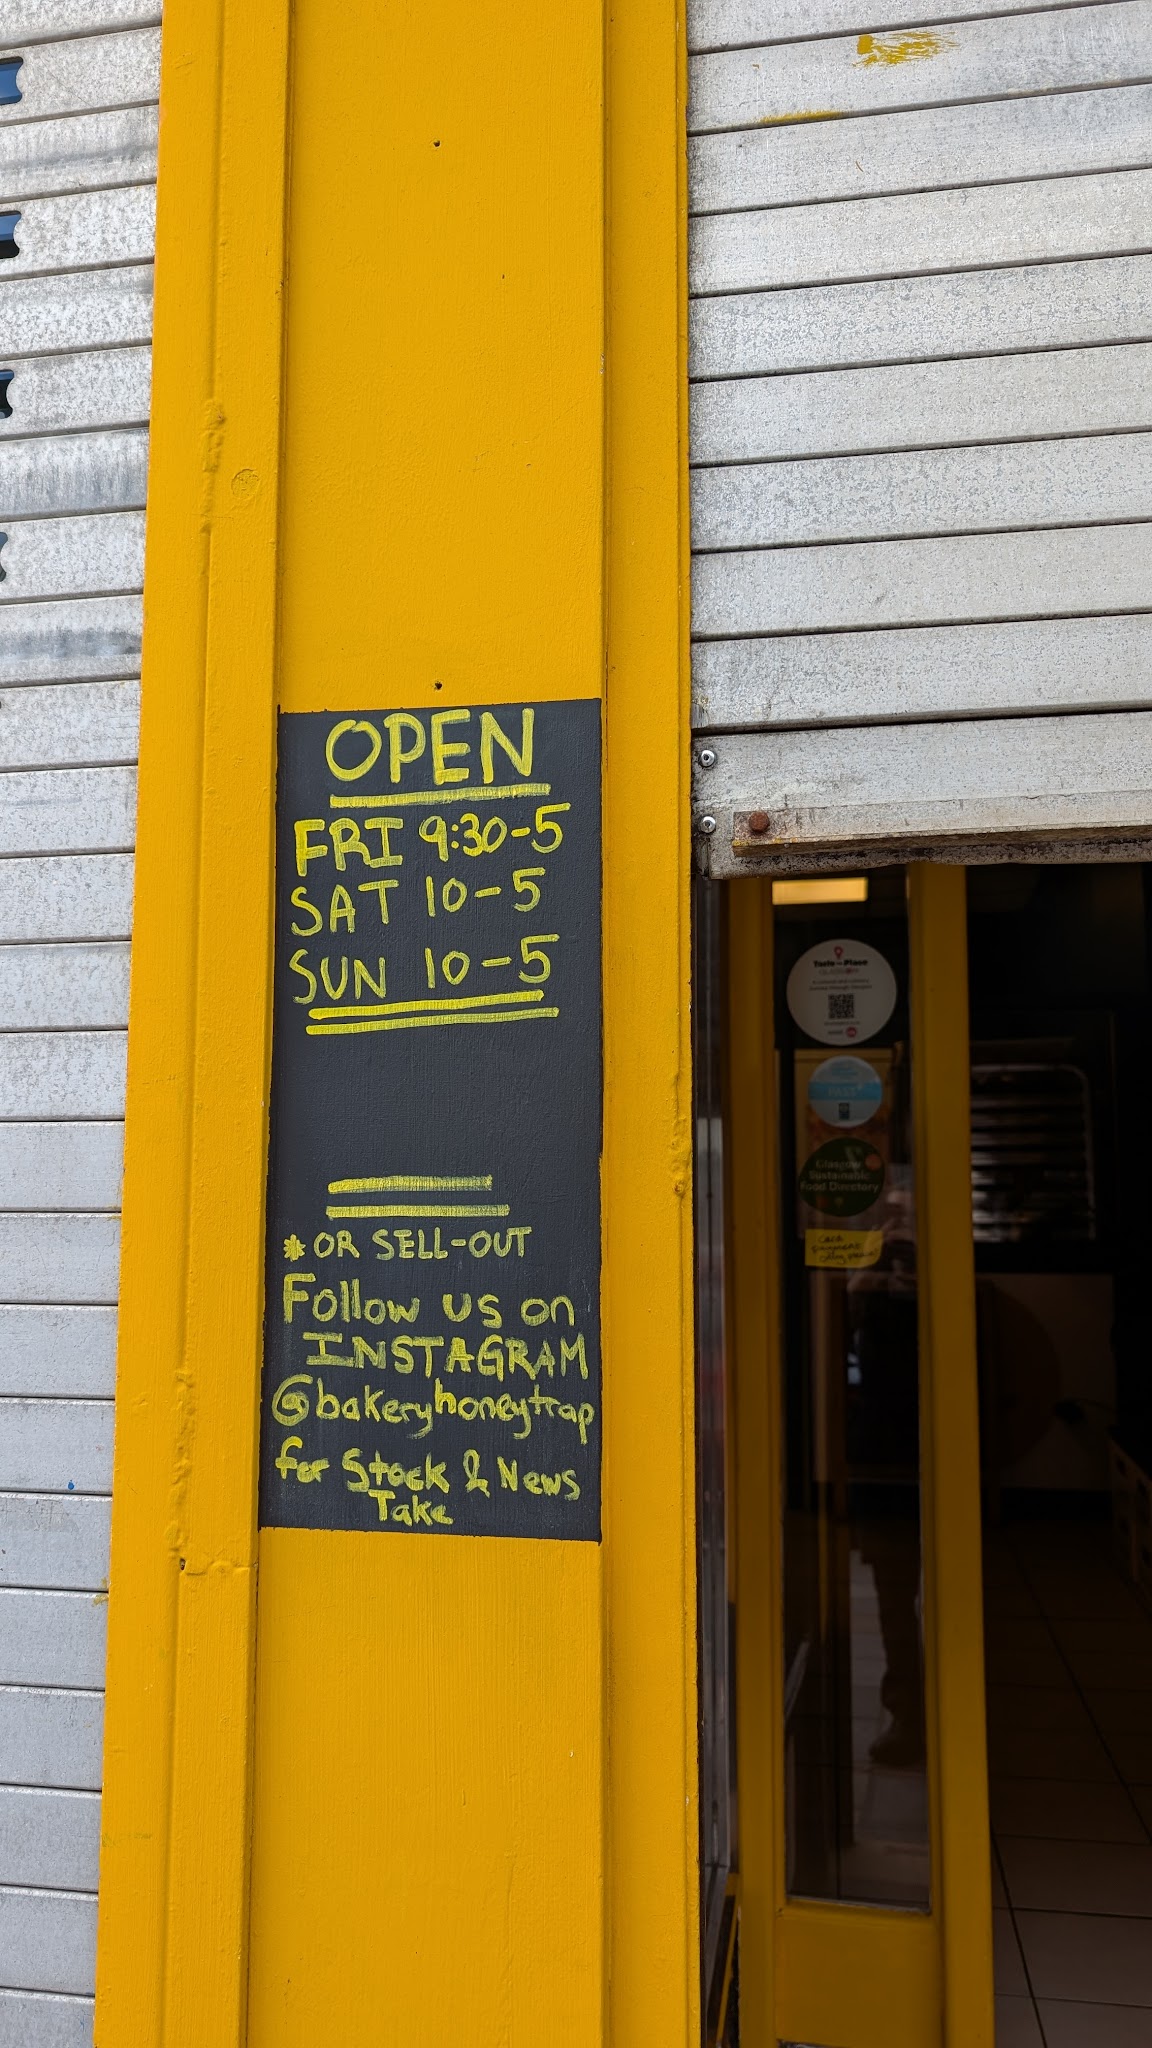 OPEN
FRI 9:30-5
SAT 10-5
SUN 10-5
* OR SELL-OUT
Follow us on
INSTAGRAM
@bakeryhoneytrap
for Stock & News
Take
Taste Place
GLASGOW
PASS
Glasgow
Sustainable
Food Directory